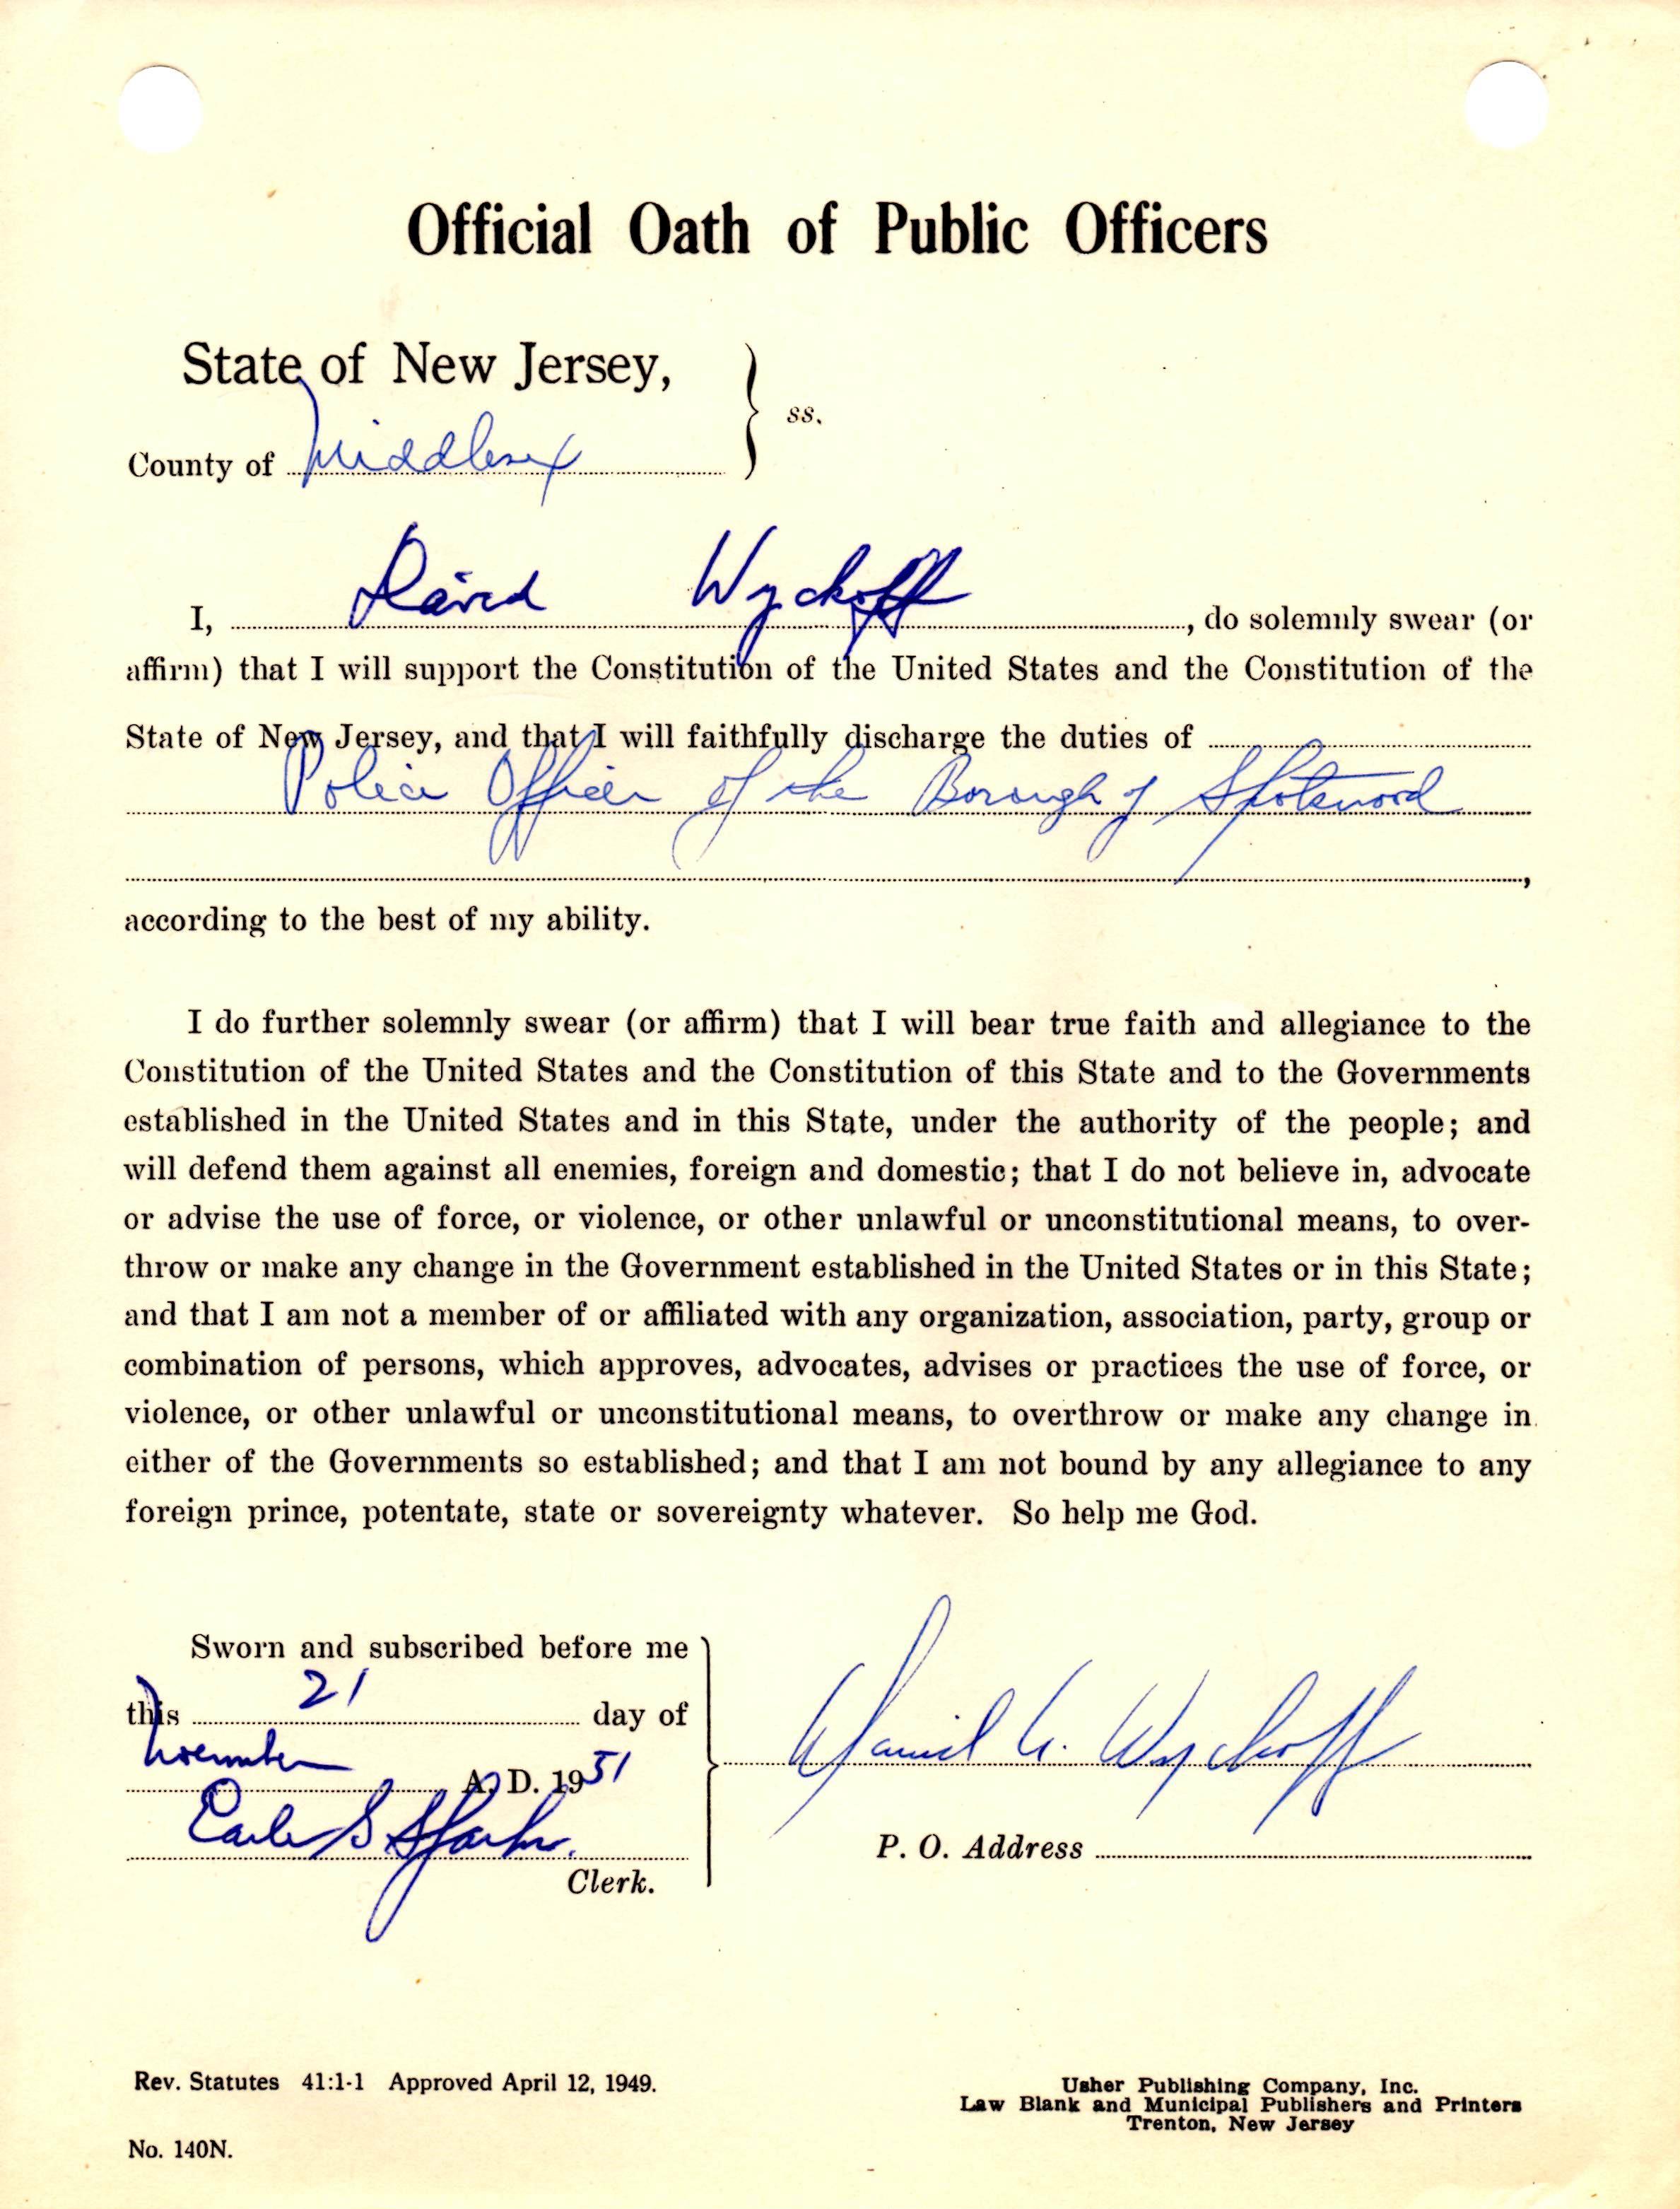 Official Oath of Public Officers
State of New Jersey,
ss.
County of Middlesex
I, David Wyckoff, do solemnly swear (or
affirm) that I will support the Constitution of the United States and the Constitution of the
State of New Jersey, and that I will faithfully discharge the duties of
Police Officer of the Borough of Spotswood
,
according to the best of my ability.
I do further solemnly swear (or affirm) that I will bear true faith and allegiance to the
Constitution of the United States and the Constitution of this State and to the Governments
established in the United States and in this State, under the authority of the people; and
will defend them against all enemies, foreign and domestic; that I do not believe in, advocate
or advise the use of force, or violence, or other unlawful or unconstitutional means, to over-
throw or make any change in the Government established in the United States or in this State;
and that I am not a member of or affiliated with any organization, association, party, group or
combination of persons, which approves, advocates, advises or practices the use of force, or
violence, or other unlawful or unconstitutional means, to overthrow or make any change in
either of the Governments so established; and that I am not bound by any allegiance to any
foreign prince, potentate, state or sovereignty whatever. So help me God.
Sworn and subscribed before me
this 21 day of
November A. D. 1951
Wyckoff
Earle S.
Clerk.
P. O. Address
Rev. Statutes 41:1-1 Approved April 12, 1949.
No. 140N.
Usher Publishing Company, Inc.
Law Blank and Municipal Publishers and Printers
Trenton, New Jersey